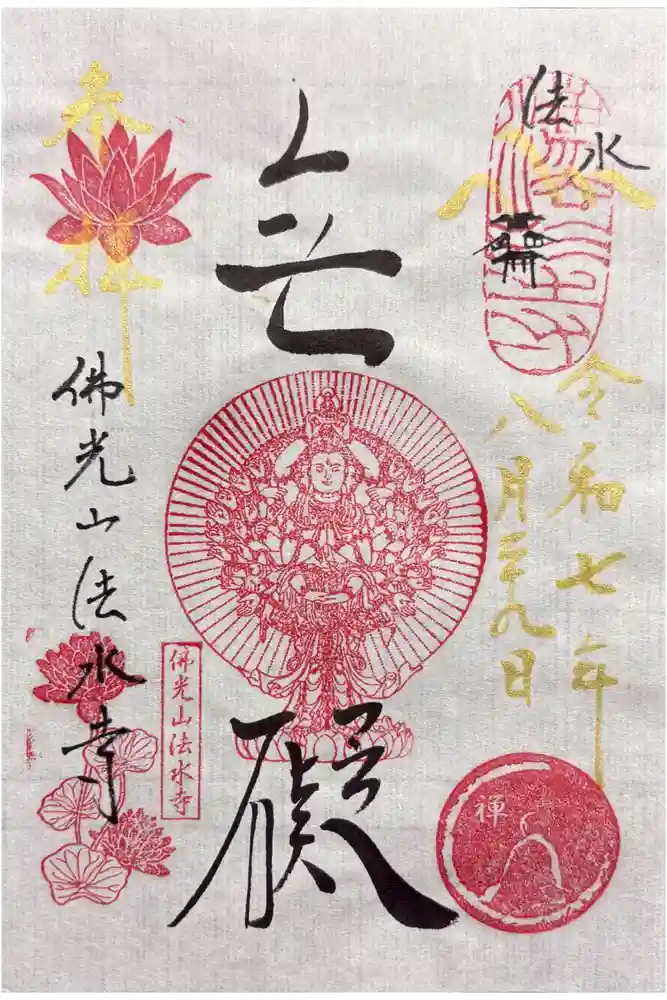 法水
令和七年
八月二十九日
無
礙
禅
参拝
佛光山法水寺
佛光山法水寺